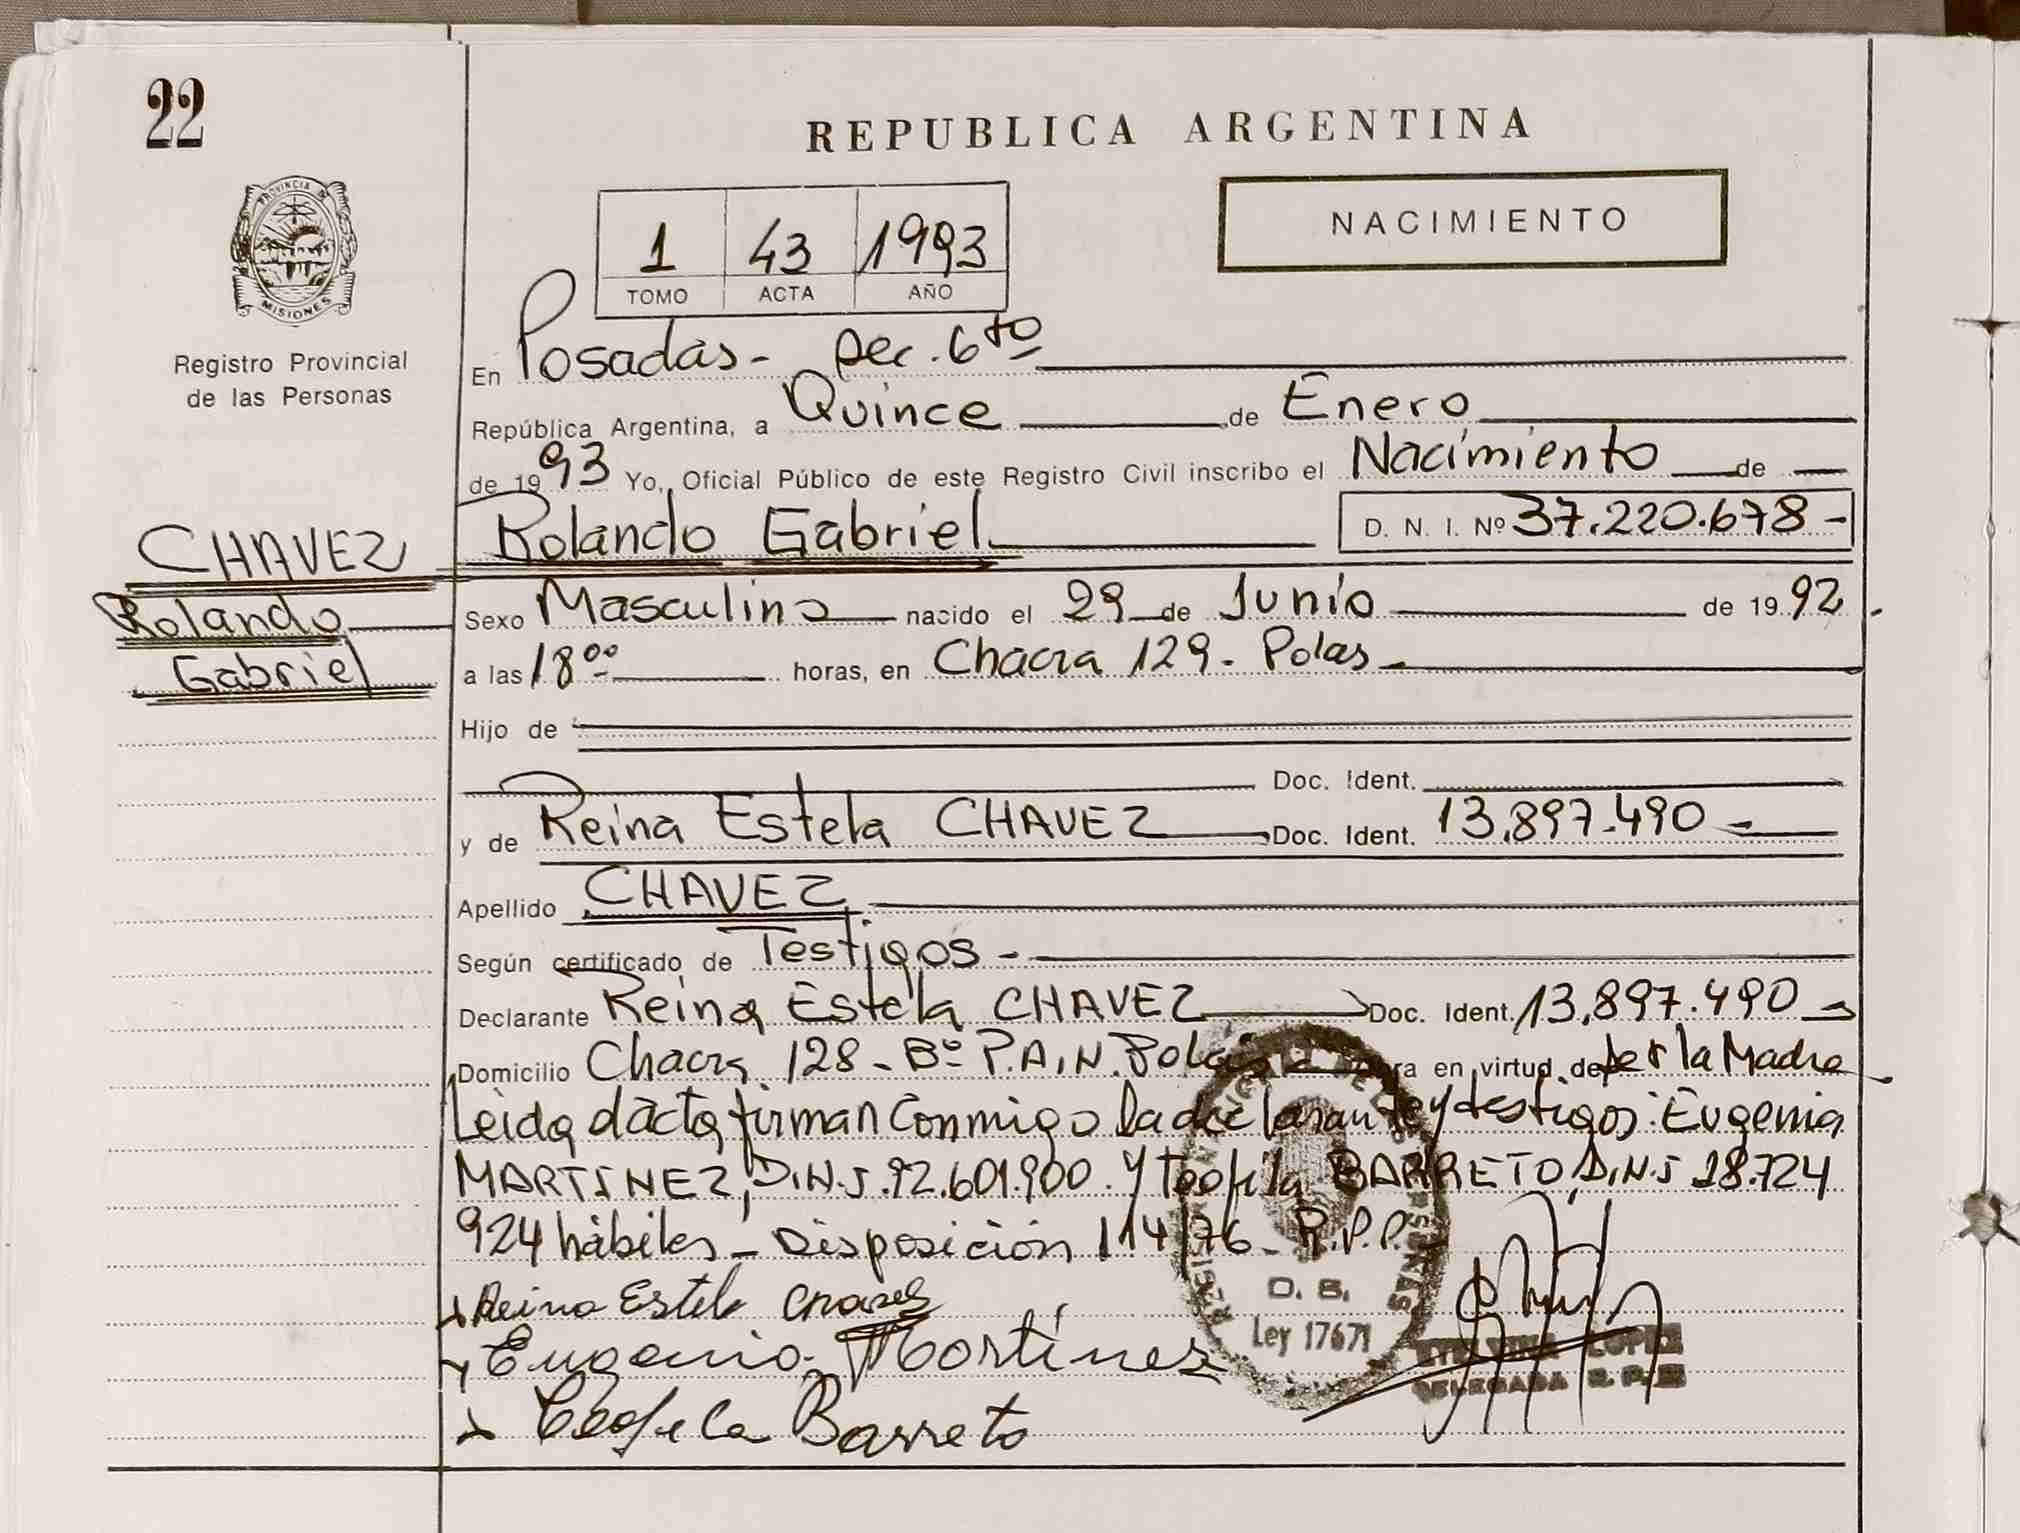 22
REPUBLICA ARGENTINA
NACIMIENTO
1 43 1993
TOMO ACTA AÑO
PROVINCIA DE MISIONES
Registro Provincial
de las Personas
En Posadas - Sec. 6to
República Argentina, a Quince de Enero
de 1993 Yo, Oficial Público de este Registro Civil inscribo el Nacimiento de
CHAVEZ
Rolando
Gabriel
Rolando Gabriel D. N. I. Nº 37.220.678 -
Sexo Masculino nacido el 29 de Junio de 1992
a las 18 00 horas, en Chacra 129 - Pdas -
Hijo de
Doc. Ident.
y de Reina Estela CHAVEZ Doc. Ident. 13.897.490 -
Apellido CHAVEZ
Según certificado de Testigos -
Declarante Reina Estela CHAVEZ Doc. Ident. 13.897.490
Domicilio Chacra 128 - Bº P.A.N. en virtud de ser la Madre
Leida el acta firman conmigo la declarante y testigos: Eugenia
MARTINEZ, D.N.I. 92.601.900 y Teofila BARRETO, D.N.I 18.724
924 hábiles - Disposición 114/76 - R.P.P.
Reina Estela Chavez
Eugenia Martinez
Teofila Barreto
D. B.
Ley 17671
LOPEZ
DELEGADA R. P. P.